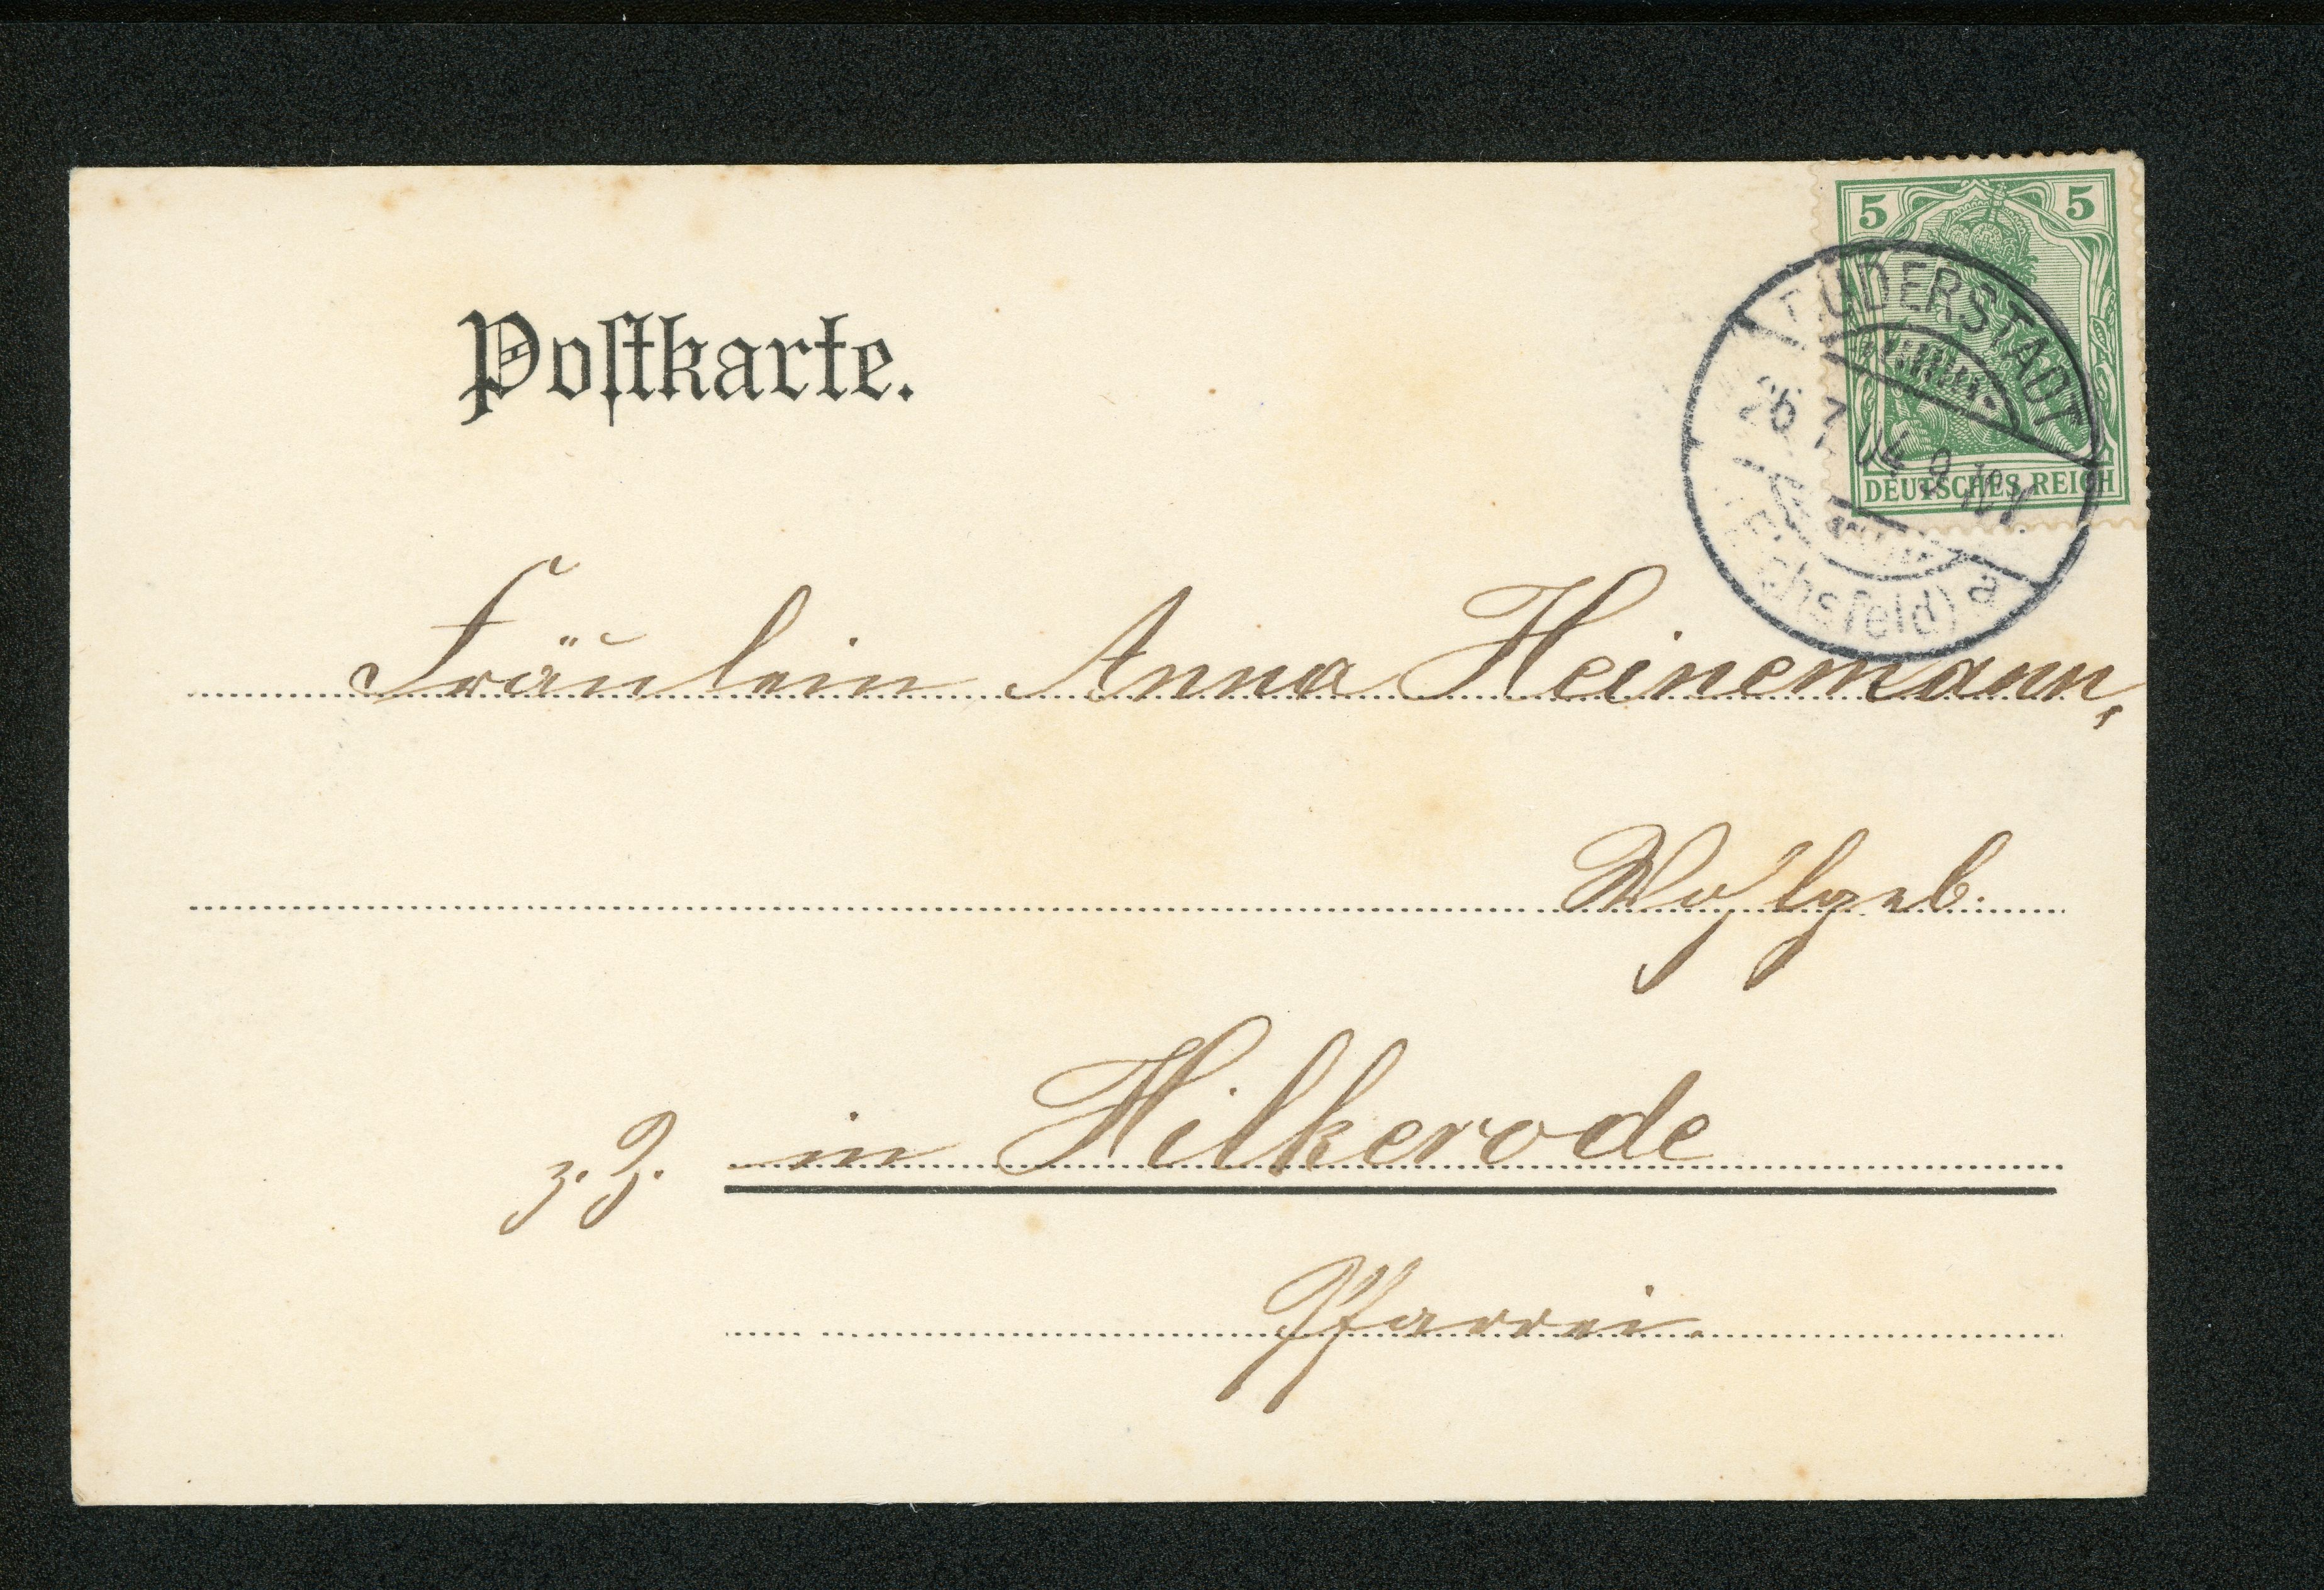 5 5
DUDERSTADT
26 7 04 9-10V.
DEUTSCHES REICH
(Eichsfeld) a
Postkarte.
Fräulein Anna Heinemann,
Wohlgeb.
z. Z. in Hilkerode
Pfarrei.